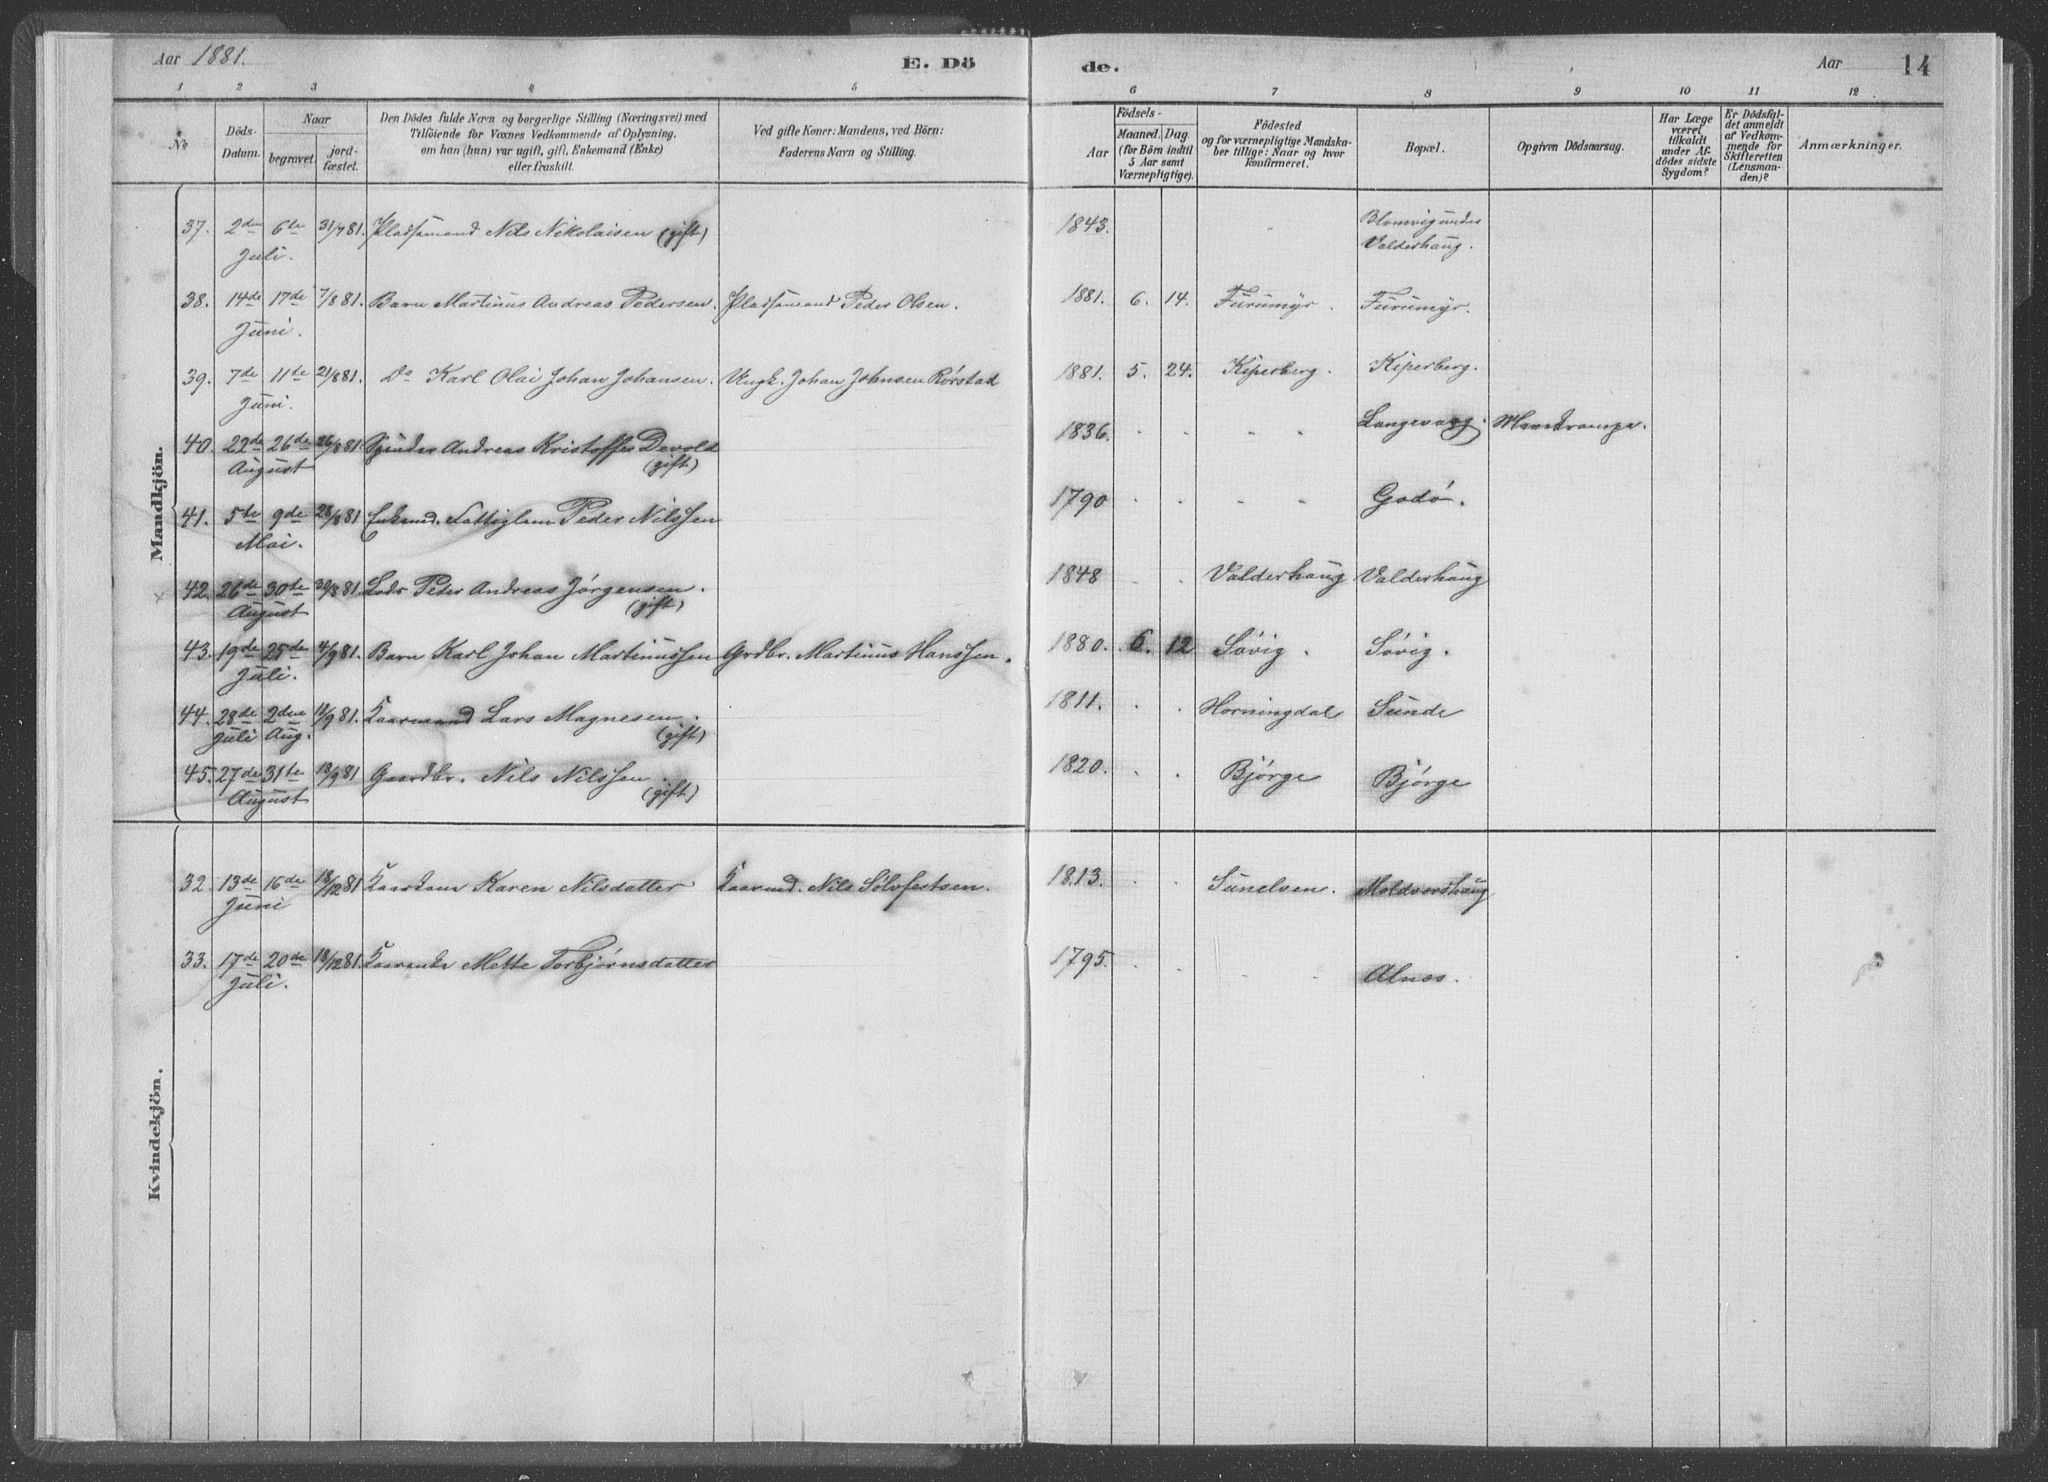 Aar 1881.
E. Dö
de.
Aar
14
1 2 3 4 5 6 7 8 9 10 11 12
No
Döds-
Datum.
Naar
begravet.
jord-
fæstet.
Den Dödes fulde Navn og borgerlige Stilling (Næringsvei) med
Tilföiende for Voxnes Vedkommende af Oplysning,
om han (hun) var ugift, gift, Enkemand (Enke)
eller fraskilt.
Ved gifte Koner: Mandens, ved Börn:
Faderens Navn og Stilling.
Födsels-
Aar
Maaned. Dag.
(for Börn indtil
5 Aar samt
Værnepligtige).
Födested
og for værnepligtige Mandska-
ber tillige: Naar og hvor
konfirmeret.
Bopæl.
Opgiven Dödsaarsag.
Har Læge
været
tilkaldt
under Af-
dödes sidste
Sygdom?
Er Dödsfal-
det anmeldt
af Vedkom-
mende for
Skifteretten
(Lensman-
den)?
Anmærkninger.
Mandkjön.
37. 2den 6te 31/7 81. Pladsmand Nils Nikolaisen (gift) 1843. Blomvig under
Juli. Valderhaug.
38. 14de 17de 7/8 81. Barn Martinus Andreas Pedersen. Pladsmand Peder Olsen. 1881. 6. 14. Furumyr. Furumyr.
Juni.
39. 7de 11te 21/8 81. Do Karl Olai Johan Johansen. Ungk. Johan Johnsen Rørstad 1881. 5. 24. Kiperberg. Kiperberg.
Juni.
40. 22de 26de 26/8 81. Andreas Kristoffer Devold 1836. Langevaag.
August (gift)
41. 5te 9de 28/8 81 Enkemd. Fattiglem Peder Nilssen 1790 Godø.
Mai.
42. 26de 30de 30/8 81. Lods Peder Andreas Jørgensen. 1848 Valderhaug Valderhaug
August (gift)
43. 19de 25de 4/9 81. Barn Karl Johan Martinussen Grdbr. Martinus Hanssen. 1880. 6. 12 Søvig. Søvig.
Juli.
44. 28de 2den 11/9 81. Kaarmand Lars Magnesen. 1811. Horningdal Sunde
Juli Aug. (gift)
45. 27de 31te 18/9 81 Gaardbr. Nils Nilssen. 1820. Bjørge Bjørge
August (gift)
Kvindekjön.
32. 13de 16de 18/12 81 Kaarkone Karen Nilsdatter Kaarmd. Nils Sølvfestsen. 1813. Sunelven. Moldværshaug
Juni
33. 17de 20de 18/12 81. Kaarenke Mette Torbjørnsdatter 1795. Alnes.
Juli.